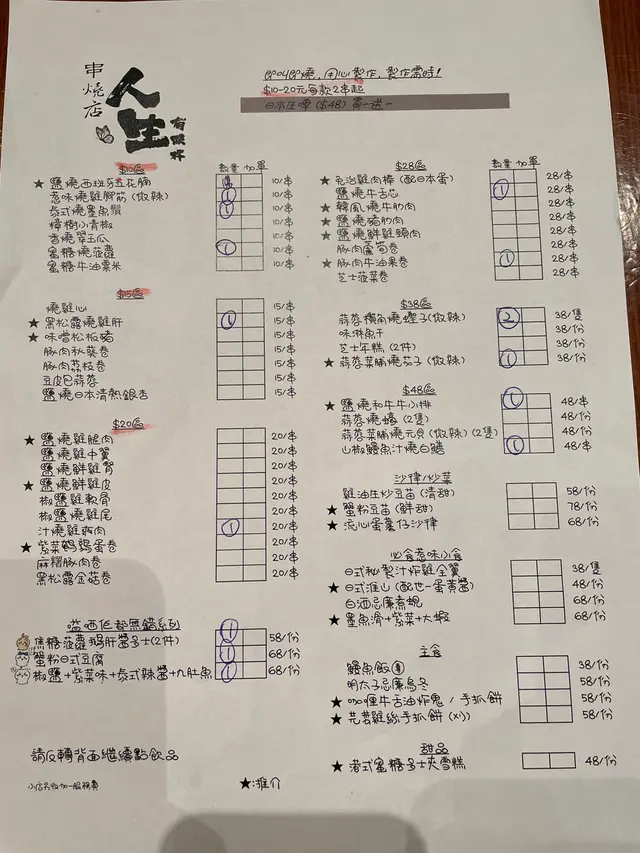 串燒店
人生
有限杯
即叫即燒，用心製作，製作需時！
$10-20元每款2串起
日本生啤 ($48) 買一送一
$10區
數量 加單
★ 鹽燒西班牙五花腩 1 10/串
惹味燒雞腳筋 (做辣) 1 10/串
泰式燒墨魚鬚 1 10/串
樟樹小青椒 10/串
香燒翠玉瓜 10/串
蜜糖燒菠蘿 1 10/串
蜜糖牛油粟米 10/串
$15區
燒雞心 15/串
★ 黑松露燒雞肝 1 15/串
★ 味噌松板豬 15/串
豚肉秋葵卷 15/串
豚肉荔枝卷 15/串
豆皮包蒜蓉 15/串
鹽燒日本清熱銀杏 15/串
$20區
★ 鹽燒雞腿肉 20/串
鹽燒雞中翼 20/串
鹽燒鮮雞腎 20/串
★ 鹽燒鮮雞皮 20/串
椒鹽雞軟骨 20/串
椒鹽燒雞尾 20/串
汁燒雞疏肉 1 20/串
★ 紫菜鵪鶉蛋卷 20/串
麻糬豚肉卷 20/串
黑松露金菇卷 20/串
嗌晒佢都無錯系列
焦糖菠蘿鵝肝醬多士(2件) 1 58/份
蟹粉日式豆腐 1 68/份
椒鹽+紫菜味+泰式辣醬+九肚魚 1 68/份
請反轉背面繼續點飲品
小店另收加一服務費
★:推介
$28區
數量 加單
★ 免治雞肉棒 (配日本蛋) 28/串
鹽燒牛舌芯 1 28/串
★ 韓風燒牛肋肉 28/串
★ 鹽燒豬肋肉 28/串
★ 鹽燒鮮雞頸肉 28/串
豚肉蘆筍卷 28/串
★ 豚肉牛油果卷 1 28/串
芝士菠菜卷 28/串
$38區
蒜蓉橫角燒蟶子(做辣) 2 38/隻
味淋魚干 38/份
芝士年糕 (2件) 38/份
★ 蒜蓉菜脯燒茄子 (做辣) 1 38/份
$48區
★ 鹽燒和牛牛小排 1 48/串
蒜蓉燒蠔 (2隻) 48/份
蒜蓉菜脯燒元貝 (做辣) (2隻) 48/份
山椒鰻魚汁燒白鱔 1 48/串
沙律/炒菜
雞油生炒豆苗 (清甜) 58/份
★ 蟹粉豆苗 (鮮甜) 78/份
★ 流心蛋薯仔沙律 68/份
必食惹味小食
日式秘製汁炸雞全翼 38/隻
★ 日式淮山 (配世一蛋黃醬) 48/份
白酒忌廉煮蜆 68/份
★ 墨魚滑+紫菜+大蝦 68/份
主食
鰻魚飯 38/份
明太子忌廉烏冬 58/份
★ 咖喱牛舌油炸鬼 / 手抓餅 58/份
★ 芫荽雞絲手抓餅 (x1) 58/份
甜品
★ 港式蜜糖多士夾雪糕 48/份